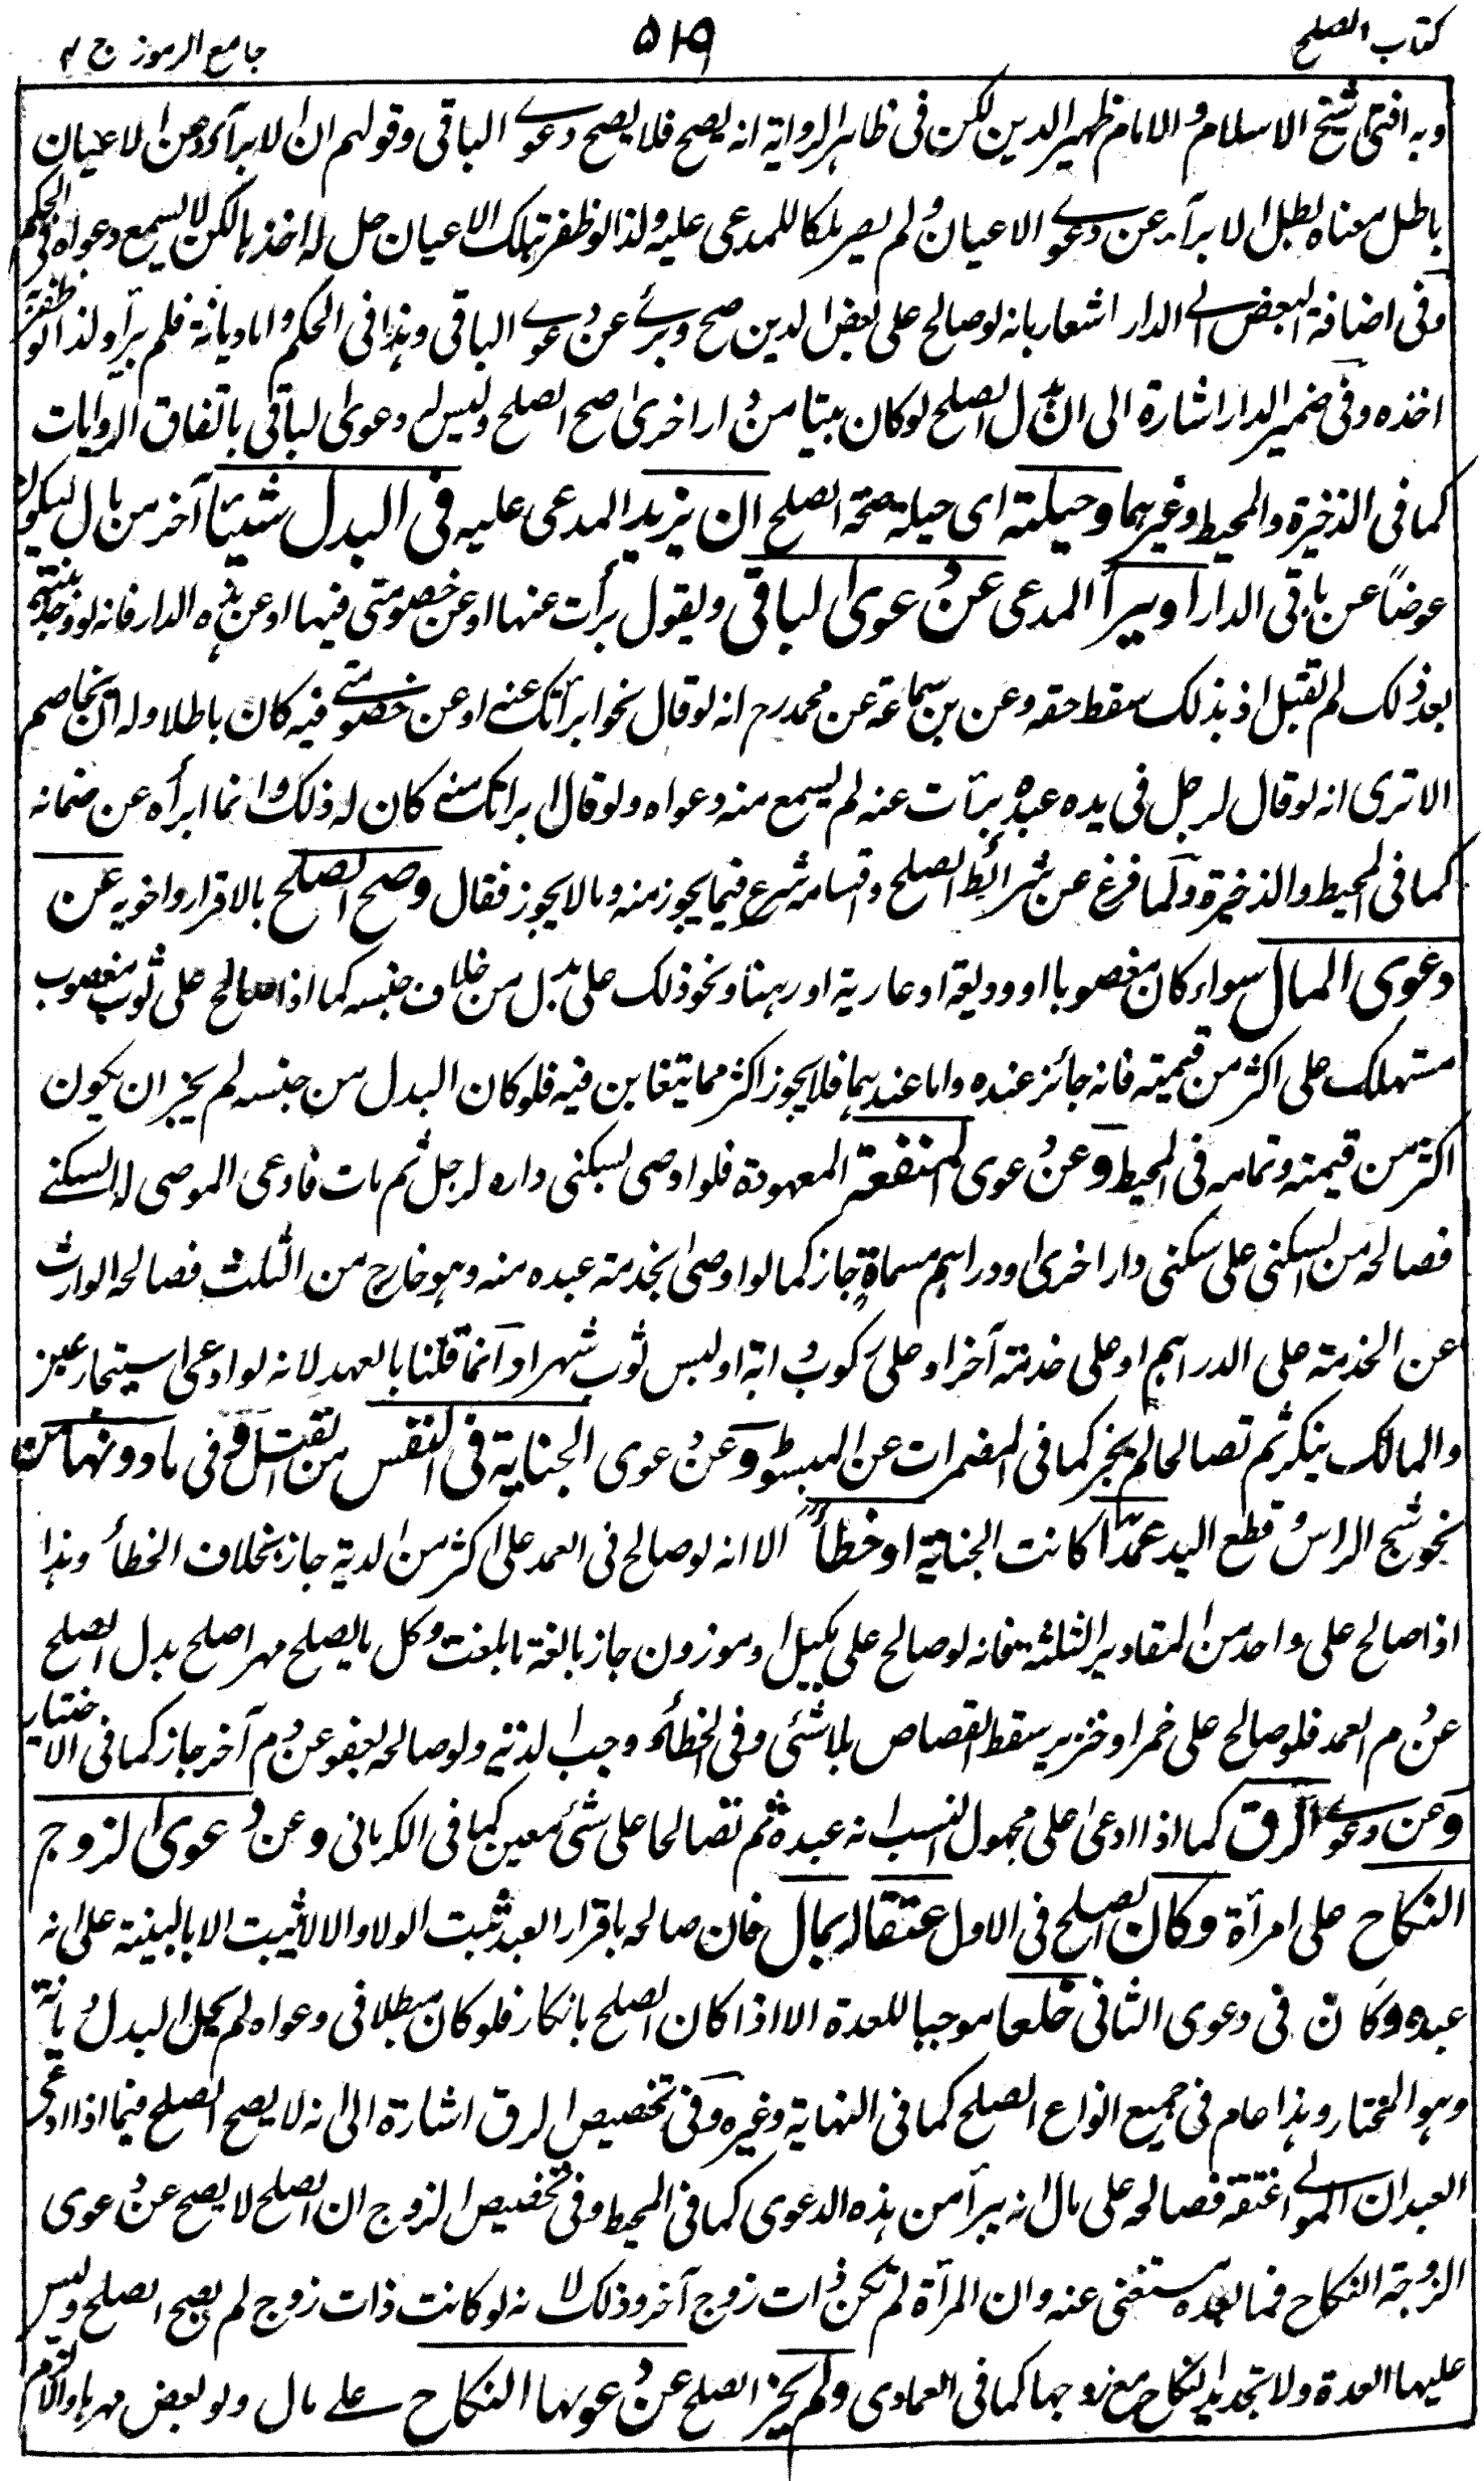 كتاب الصلح
٥١٩
جامع الرموز ج ٢
وبه افتى شيخ الاسلام والامام ظهير الدين لكن فى ظاهر الرواية انه يصح فلا يصح دعوے الباقى وقولهم ان الابرآء عن الاعيان
باطل معناه بطل الابرآء عن دعوے الاعيان ولم يصر ملكا للمدعى عليه ولذا لو ظفر بتلك الاعيان حل له اخذها لكن لا يسمع دعواه فى الحكم
وفى اضافة البعض الے الدار اشعار بانه لو صالح على بعض الدين صح وبرئ عن دعوے الباقى وهذا فى الحكم واما ديانة فلم يبرأ ولذا لو ظفر
اخذه وفى ضمير الدار اشارة الى ان بدل الصلح لو كان بيتا من دار اخرى صح الصلح وليس له دعوى الباقى باتفاق الروايات
كما فى الذخيرة والمحيط وغيرهما وحيلته اى حيلة صحة الصلح ان يزيد المدعى عليه فى البدل شيئا آخر من مال ليكون
عوضاً عن باقى الدار او يبرأ المدعى عن دعوى الباقى ويقول برأت عنها او عن خصومتى فيها او عن هذه الدار فانه لو وجد بينة
بعد ذلك لم تقبل اذ بذلك سقط حقه وعن بن سماعة عن محمد رح انه لو قال نحو ابرأتك عنے او عن خصومتے فيه كان باطلا وله ان يخاصم
الا ترى انه لو قال لرجل فى يده عبده برأت عنه لم يسمع منه دعواه ولو قال ابراتك منے كان له ذلك وانما ابرأه عن ضمانه
كما فى المحيط والذخيرة ولما فرغ عن شرائط الصلح واقسامه شرع فيما يجوز منه وما لا يجوز فقال وصح الصلح بالاقرار واخويه عن
دعوى المال سواء كان مغصوبا او وديعة او عارية او رهنا ونحو ذلك على بدل من خلاف جنسه كما اذا صالح على ثوب مغصوب
مستهلك على اكثر من قيمته فانه جائز عنده واما عندهما فلا يجوز اكثر مما يتغابن فيه فلو كان البدل من جنسه لم يجز ان يكون
اكثر من قيمته وتمامه فى المحيط وعن دعوى المنفعة المعهودة فلو اوصى بسكنى داره لرجل ثم مات فادعى الموصى له السكنے
فصالحه من السكنى على سكنى دار اخرى او دراهم مسماة جاز كما لو اوصى بخدمة عبده منه وهو خارج من الثلث فصالحه الوارث
عن الخدمة على الدراهم او على خدمة آخر او على ركوب دابة او لبس ثوب شهرا وانما قلنا بالعهد لانه لو ادعى استيجار عين
والمالك ينكر ثم تصالحا لم يجز كما فى المضمرات عن المبسوط وعن دعوى الجناية فى النفس من القتل وفى ما دونها من
نحو شج الراس وقطع اليد عمدا كانت الجناية او خطأ الا انه لو صالح فى العمد على اكثر من الدية جاز بخلاف الخطأ وهذا
اذا صالح على واحد من المقادير الثلثة فانه لو صالح على مكيل او موزون جاز بالغة ما بلغت وكل ما يصلح مهرا صلح بدل الصلح
عن دم العمد فلو صالح على خمر او خنزير سقط القصاص بلا شئى وفى الخطأ وجب الدية ولو صالحه بعفو عن دم آخر جاز كما فى الاختيار
وعن دعوے الرق كما اذا ادعى على مجهول النسب انه عبده ثم تصالحا على شئ معين كما فى الكرمانى وعن دعوى الزوج
النكاح على امرأة وكان الصلح فى الاول عتقا له بمال فان صالحه باقرار العبد ثبت الولاء والا لا يثبت الا بالبينة على انه
عبده وكان فى دعوى الثانى خلعا موجبا للعدة الا اذا كان الصلح بانكار فلو كان مبطلا فى دعواه لم يحل البدل ديانة
وهو المختار وهذا عام فى جميع انواع الصلح كما فى النهاية وغيره وفى تخصيص الرق اشارة الى انه لا يصح الصلح فيما اذا ادعى
العبد ان المولے اعتقه فصالحه على مال انه يبرأ من هذه الدعوى كما فى المحيط وفى تخصيص الزوج ان الصلح لا يصح عن دعوى
الزوجة النكاح فما بعده مستغنى عنه وان المرأة لم تكن ذات زوج آخر وذلك لانه لو كانت ذات زوج لم يصح الصلح وليس
عليها العدة ولا تجديد النكاح مع زوجها كما فى العمادى ولم يجز الصلح عن دعويها النكاح علے مال ولو بعض مهرها والا لزم